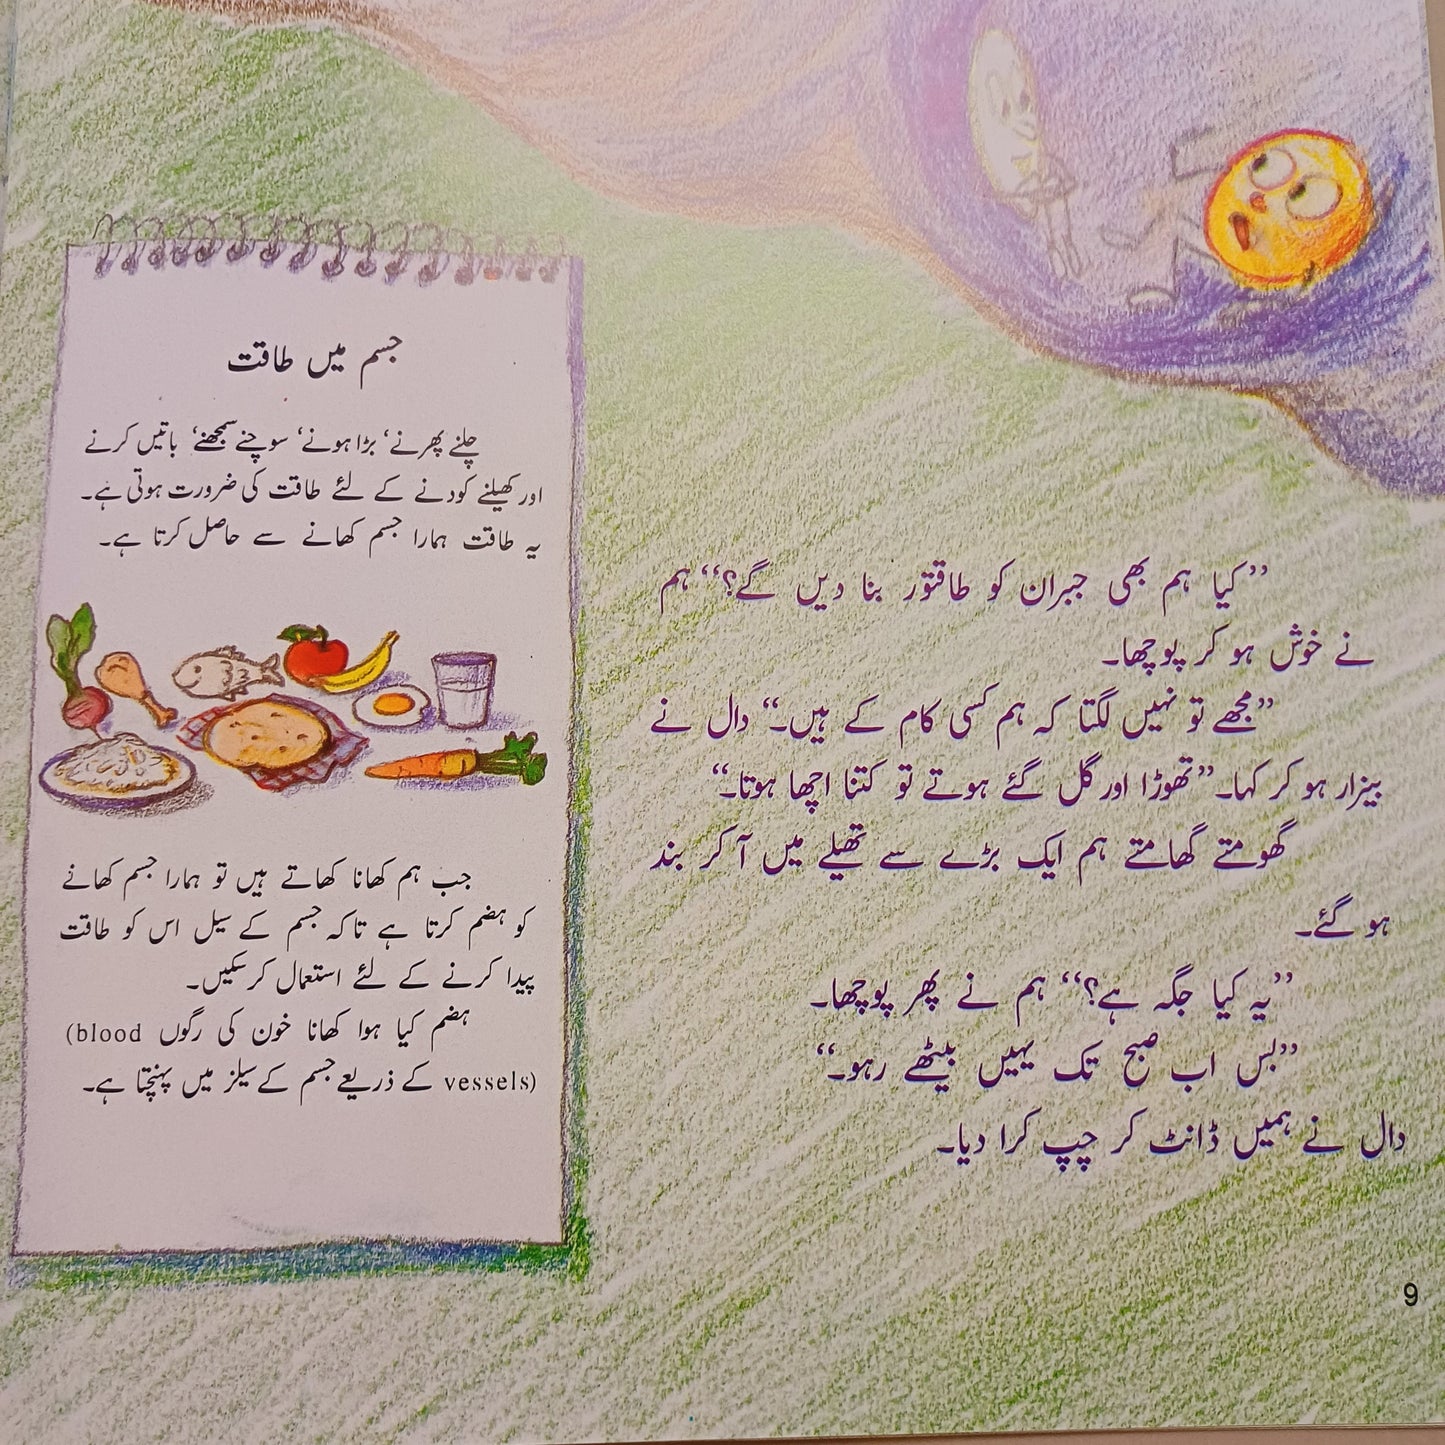 جسم میں طاقت
چلنے پھرنے، بڑا ہونے، سوچنے سمجھنے، باتیں کرنے
اور کھیلنے کودنے کے لئے طاقت کی ضرورت ہوتی ہے۔
یہ طاقت ہمارا جسم کھانے سے حاصل کرتا ہے۔
جب ہم کھانا کھاتے ہیں تو ہمارا جسم کھانے
کو ہضم کرتا ہے تاکہ جسم کے سیل اس کو طاقت
پیدا کرنے کے لئے استعمال کر سکیں۔
ہضم کیا ہوا کھانا خون کی رگوں (blood
vessels) کے ذریعے جسم کے سیلز میں پہنچتا ہے۔
”کیا ہم بھی جبران کو طاقتور بنا دیں گے؟“ ہم
نے خوش ہو کر پوچھا۔
”مجھے تو نہیں لگتا کہ ہم کسی کام کے ہیں۔“ دال نے
بیزار ہو کر کہا۔ ”تھوڑا اور گل گئے ہوتے تو کتنا اچھا ہوتا۔“
گھومتے گھامتے ہم ایک بڑے سے تھیلے میں آ کر بند
ہو گئے۔
”یہ کیا جگہ ہے؟“ ہم نے پھر پوچھا۔
”بس اب صبح تک یہیں بیٹھے رہو۔“
دال نے ہمیں ڈانٹ کر چپ کرا دیا۔
9